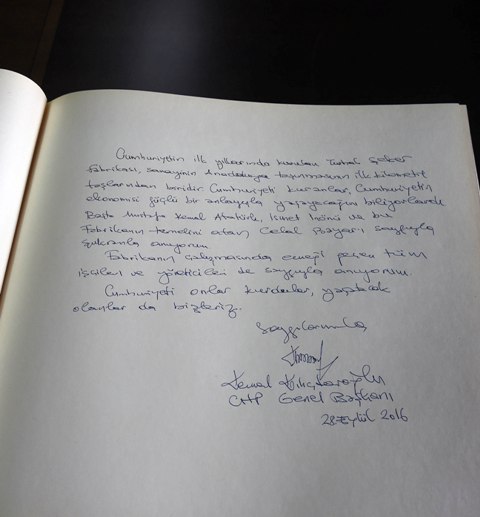 Cumhuriyetin ilk yıllarında kurulan Turhal Şeker
Fabrikası, sanayinin Anadoluya taşınmasının ilk kilometre
taşlarından biridir. Cumhuriyeti kuranlar, Cumhuriyetin
ekonomisi güçlü bir anlayışla yaşayacağını biliyorlardı.
Başta Mustafa Kemal Atatürk, İsmet İnönü ve bu
Fabrikanın temelini atan Celal Bayarı saygıyla
şükranla anıyorum.
Fabrikanın çalışmasında emeği geçen tüm
işçileri ve yöneticileri de saygıyla anıyorum.
Cumhuriyeti onlar kurdular, yaşatacak
olanlar da bizleriz.
Saygılarımla,
Kemal Kılıçdaroğlu
CHP Genel Başkanı
28 Eylül 2016